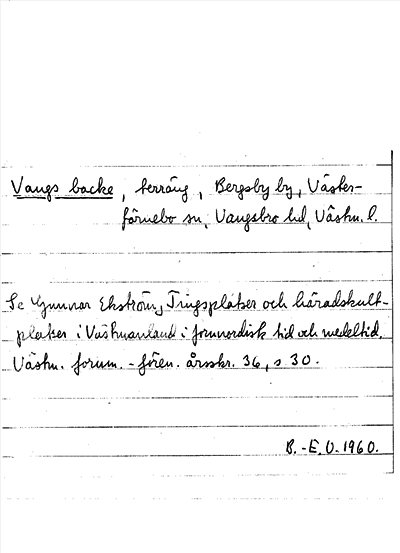 Vangs backe, terräng, Bergsby by, Väster-
färnebo sn, Vangsbro hd, Västm. l.
Se Gunnar Ekström, Tingsplatser och häradskult-
platser i Västmanland i fornnordisk tid och medeltid.
Västm. fornm.-fören. årsskr. 36, s 30.
B.-E. O. 1960.